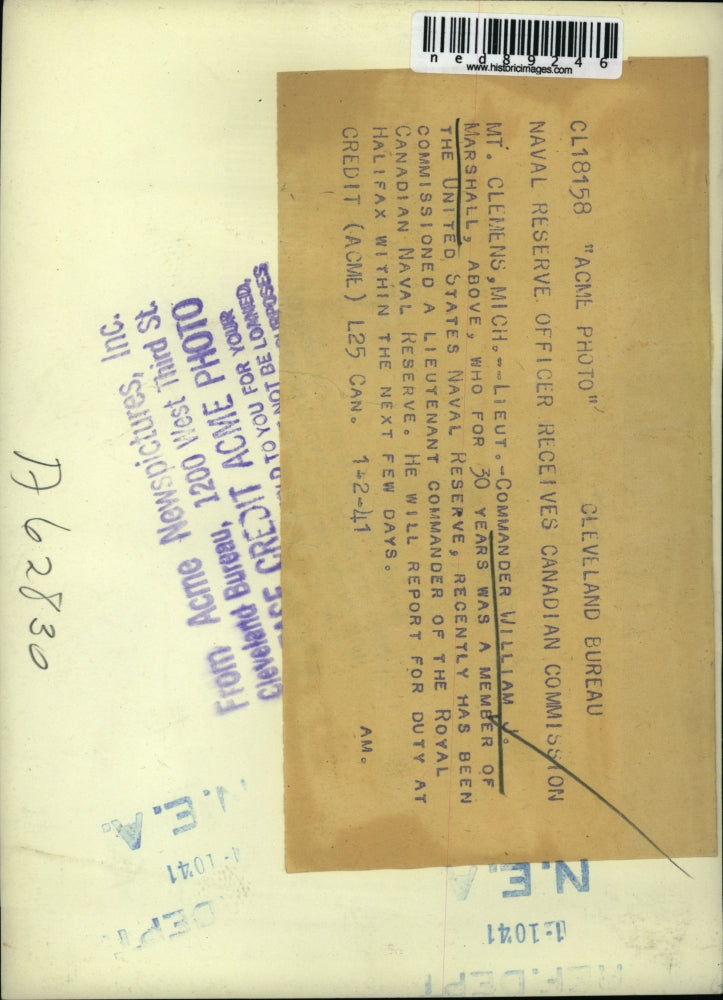 ned89246
www.historicimages.com
CL18158 "ACME PHOTO" CLEVELAND BUREAU
NAVAL RESERVE OFFICER RECEIVES CANADIAN COMMISSION
MT. CLEMENS, MICH.--LIEUT.-COMMANDER WILLIAM J.
MARSHALL, ABOVE, WHO FOR 30 YEARS WAS A MEMBER OF
THE UNITED STATES NAVAL RESERVE, RECENTLY HAS BEEN
COMMISSIONED A LIEUTENANT COMMANDER OF THE ROYAL
CANADIAN NAVAL RESERVE. HE WILL REPORT FOR DUTY AT
HALIFAX WITHIN THE NEXT FEW DAYS.
CREDIT (ACME) L25 CAN. 1-2-41 AM.
TO YOU FOR YOUR
NOT BE LOANED,
CREDIT ACME PHOTO
Cleveland Bureau, 1200 West Third St.
From Acme Newspictures, Inc.
A62830
N.E.A.
1-1041
DEPT.
N.E.A
1-1041
REF.DEPT